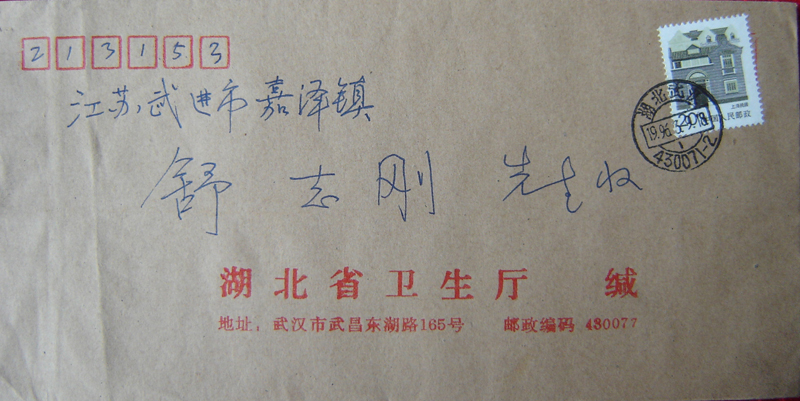 213153
江苏,武进市嘉泽镇
舒志刚 先生收
上海民居
20 中国人民邮政
湖北武汉
430071-2
湖北省卫生厅 缄
地址：武汉市武昌东湖路165号 邮政编码 430077